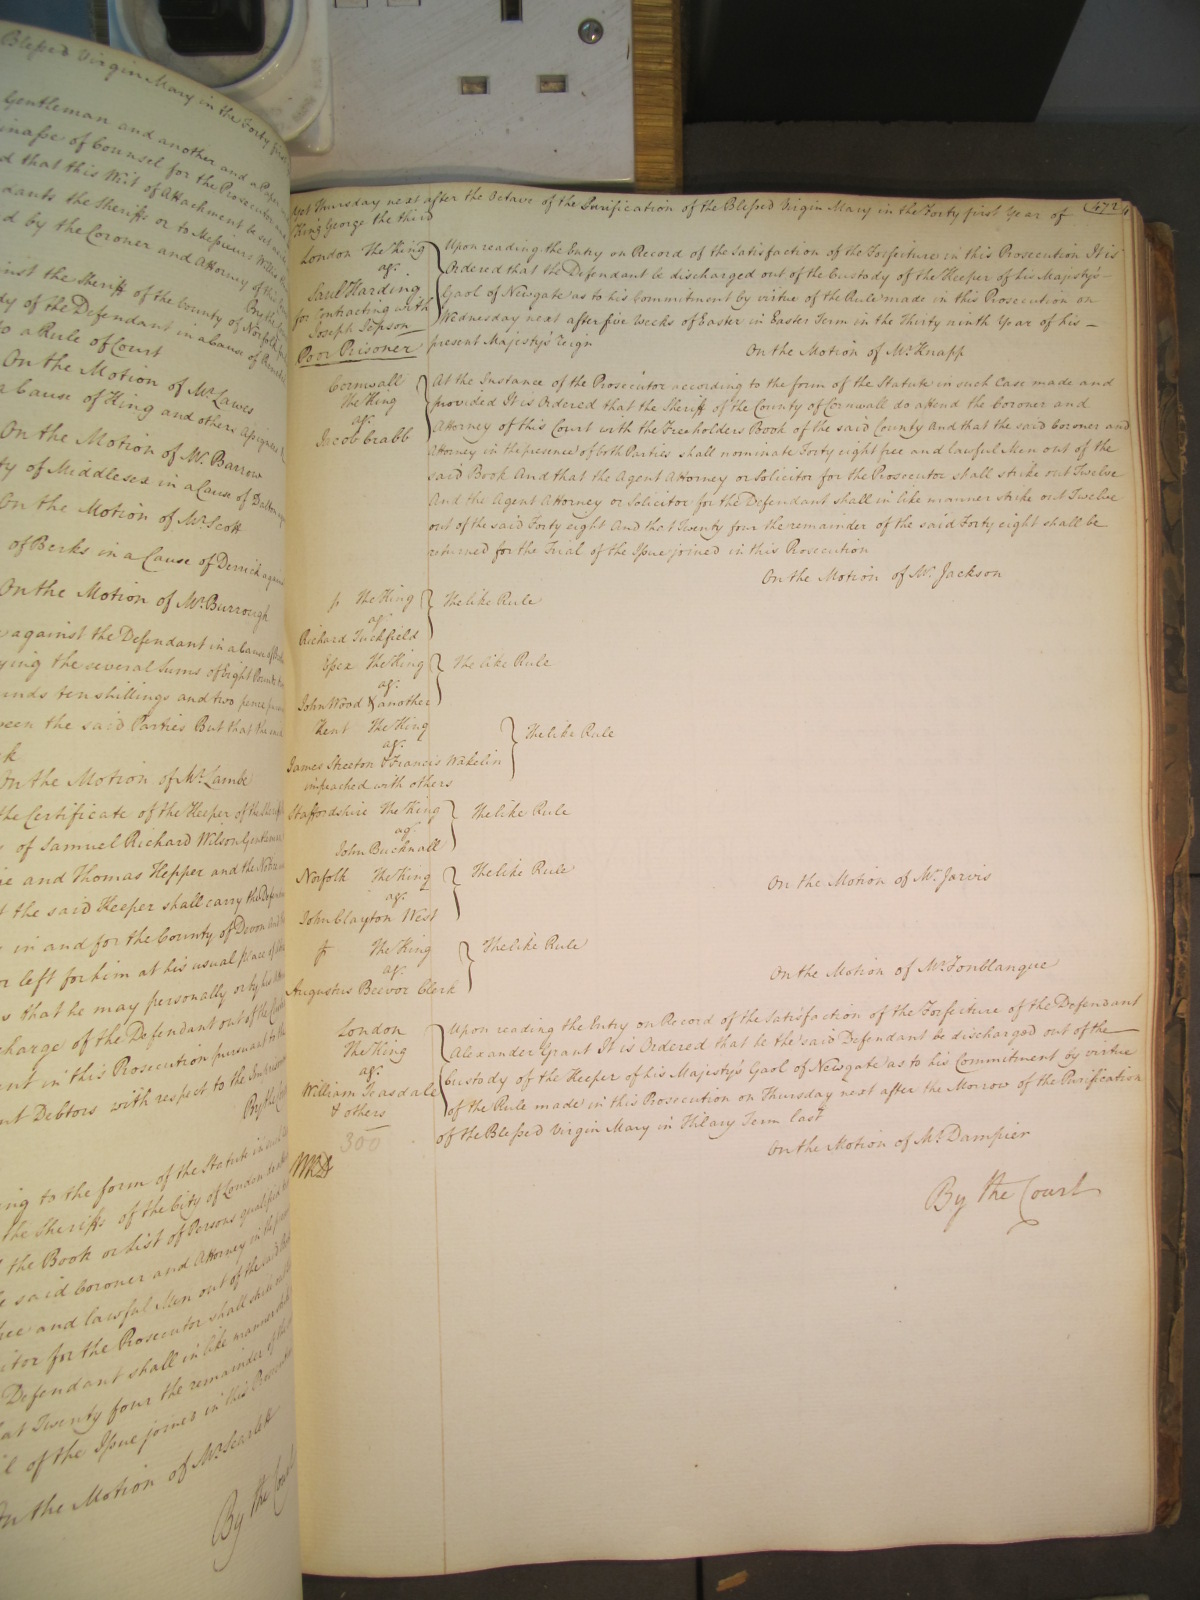 Blessed Virgin Mary in the Forty first
Gentleman and another and a Paper
of Counsel for the Prosecutor
that this Writ of Attachment be set
the Sheriffs or to Messieurs Willis
d by the Coroner and Attorney of this
By the
the Sheriff of the County of Norfolk
of the Defendant in a Cause of
o a Rule of Court
On the Motion of Mr. Lawes
a Cause of King and others against
On the Motion of Mr. Barrow
ty of Middlesex in a Cause of Dalton
On the Motion of Mr. Scott
of Berks in a Cause of Derrick against
On the Motion of Mr. Burrough
against the Defendant in a Cause of
ying the several Sums of Eight Pounds
unds ten shillings and two pence
ween the said Parties But that the
k
On the Motion of Mr. Lambe
the Certificate of the Keeper of the
of Samuel Richard Wilson Gentleman
and Thomas Hepper and the Notice
t the said Keeper shall carry the Defendant
in and for the County of Devon and
or left for him at his usual place of
s that he may personally or by his
charge of the Defendant out of the Custody
ent in this Prosecution pursuant to the
nt Debtors with respect to the
By the Court
ing to the form of the Statute in
the Sheriffs of the City of London do
the Book or List of Persons qualified
said Coroner and Attorney in the
free and lawful Men out of the said
itor for the Prosecutor shall strike out
Defendant shall in like manner
at Twenty four the remainder of the
l of the Issue joined in this Prosecution
On the Motion of Mr. Scarlett
By the Court
Yet Thursday next after the Octave of the Purification of the Blessed Virgin Mary in the Forty first Year of 472
King George the third
London The King
agt.
Saul Harding
for Contracting with
Joseph Jepson
Poor Prisoner
Upon reading the Entry on Record of the Satisfaction of the Forfeiture in this Prosecution It is
Ordered that the Defendant be discharged out of the Custody of the Keeper of his Majesty's
Gaol of Newgate as to his Commitment by virtue of the Rule made in this Prosecution on
Wednesday next after five Weeks of Easter in Easter Term in the Thirty ninth Year of his
present Majesty's reign
On the Motion of Mr. Knapp
Cornwall
The King
agt.
Jacob Crabb
At the Instance of the Prosecutor according to the form of the Statute in such Case made and
provided It is Ordered that the Sheriff of the County of Cornwall do attend the Coroner and
Attorney of this Court with the Freeholders Book of the said County And that the said Coroner and
Attorney in the presence of both Parties shall nominate Forty eight free and lawful Men out of the
said Book And that the Agent Attorney or Solicitor for the Prosecutor shall strike out Twelve
And the Agent Attorney or Solicitor for the Defendant shall in like manner strike out Twelve
out of the said Forty eight And that Twenty four the remainder of the said Forty eight shall be
returned for the Trial of the Issue joined in this Prosecution
On the Motion of Mr. Jackson
The King
agt.
Richard Tuckfield
The like Rule
Essex The King
agt.
John Wood & another
The like Rule
Kent The King
agt.
James Streeton & Francis Wakelin
impeached with others
The like Rule
Staffordshire The King
agt.
John Bucknall
The like Rule
Norfolk The King
agt.
John Clayton West
The like Rule
On the Motion of Mr. Jarvis
The King
agt.
Augustus Beevor Clerk
The like Rule
On the Motion of Mr. Fonblanque
London
The King
agt.
William Teasdale
& others
300
Upon reading the Entry on Record of the Satisfaction of the Forfeiture of the Defendant
Alexander Grant It is Ordered that he the said Defendant be discharged out of the
Custody of the Keeper of his Majesty's Gaol of Newgate as to his Commitment by virtue
of the Rule made in this Prosecution on Thursday next after the Morrow of the Purification
of the Blessed Virgin Mary in Hilary Term last
On the Motion of Mr. Dampier
By the Court